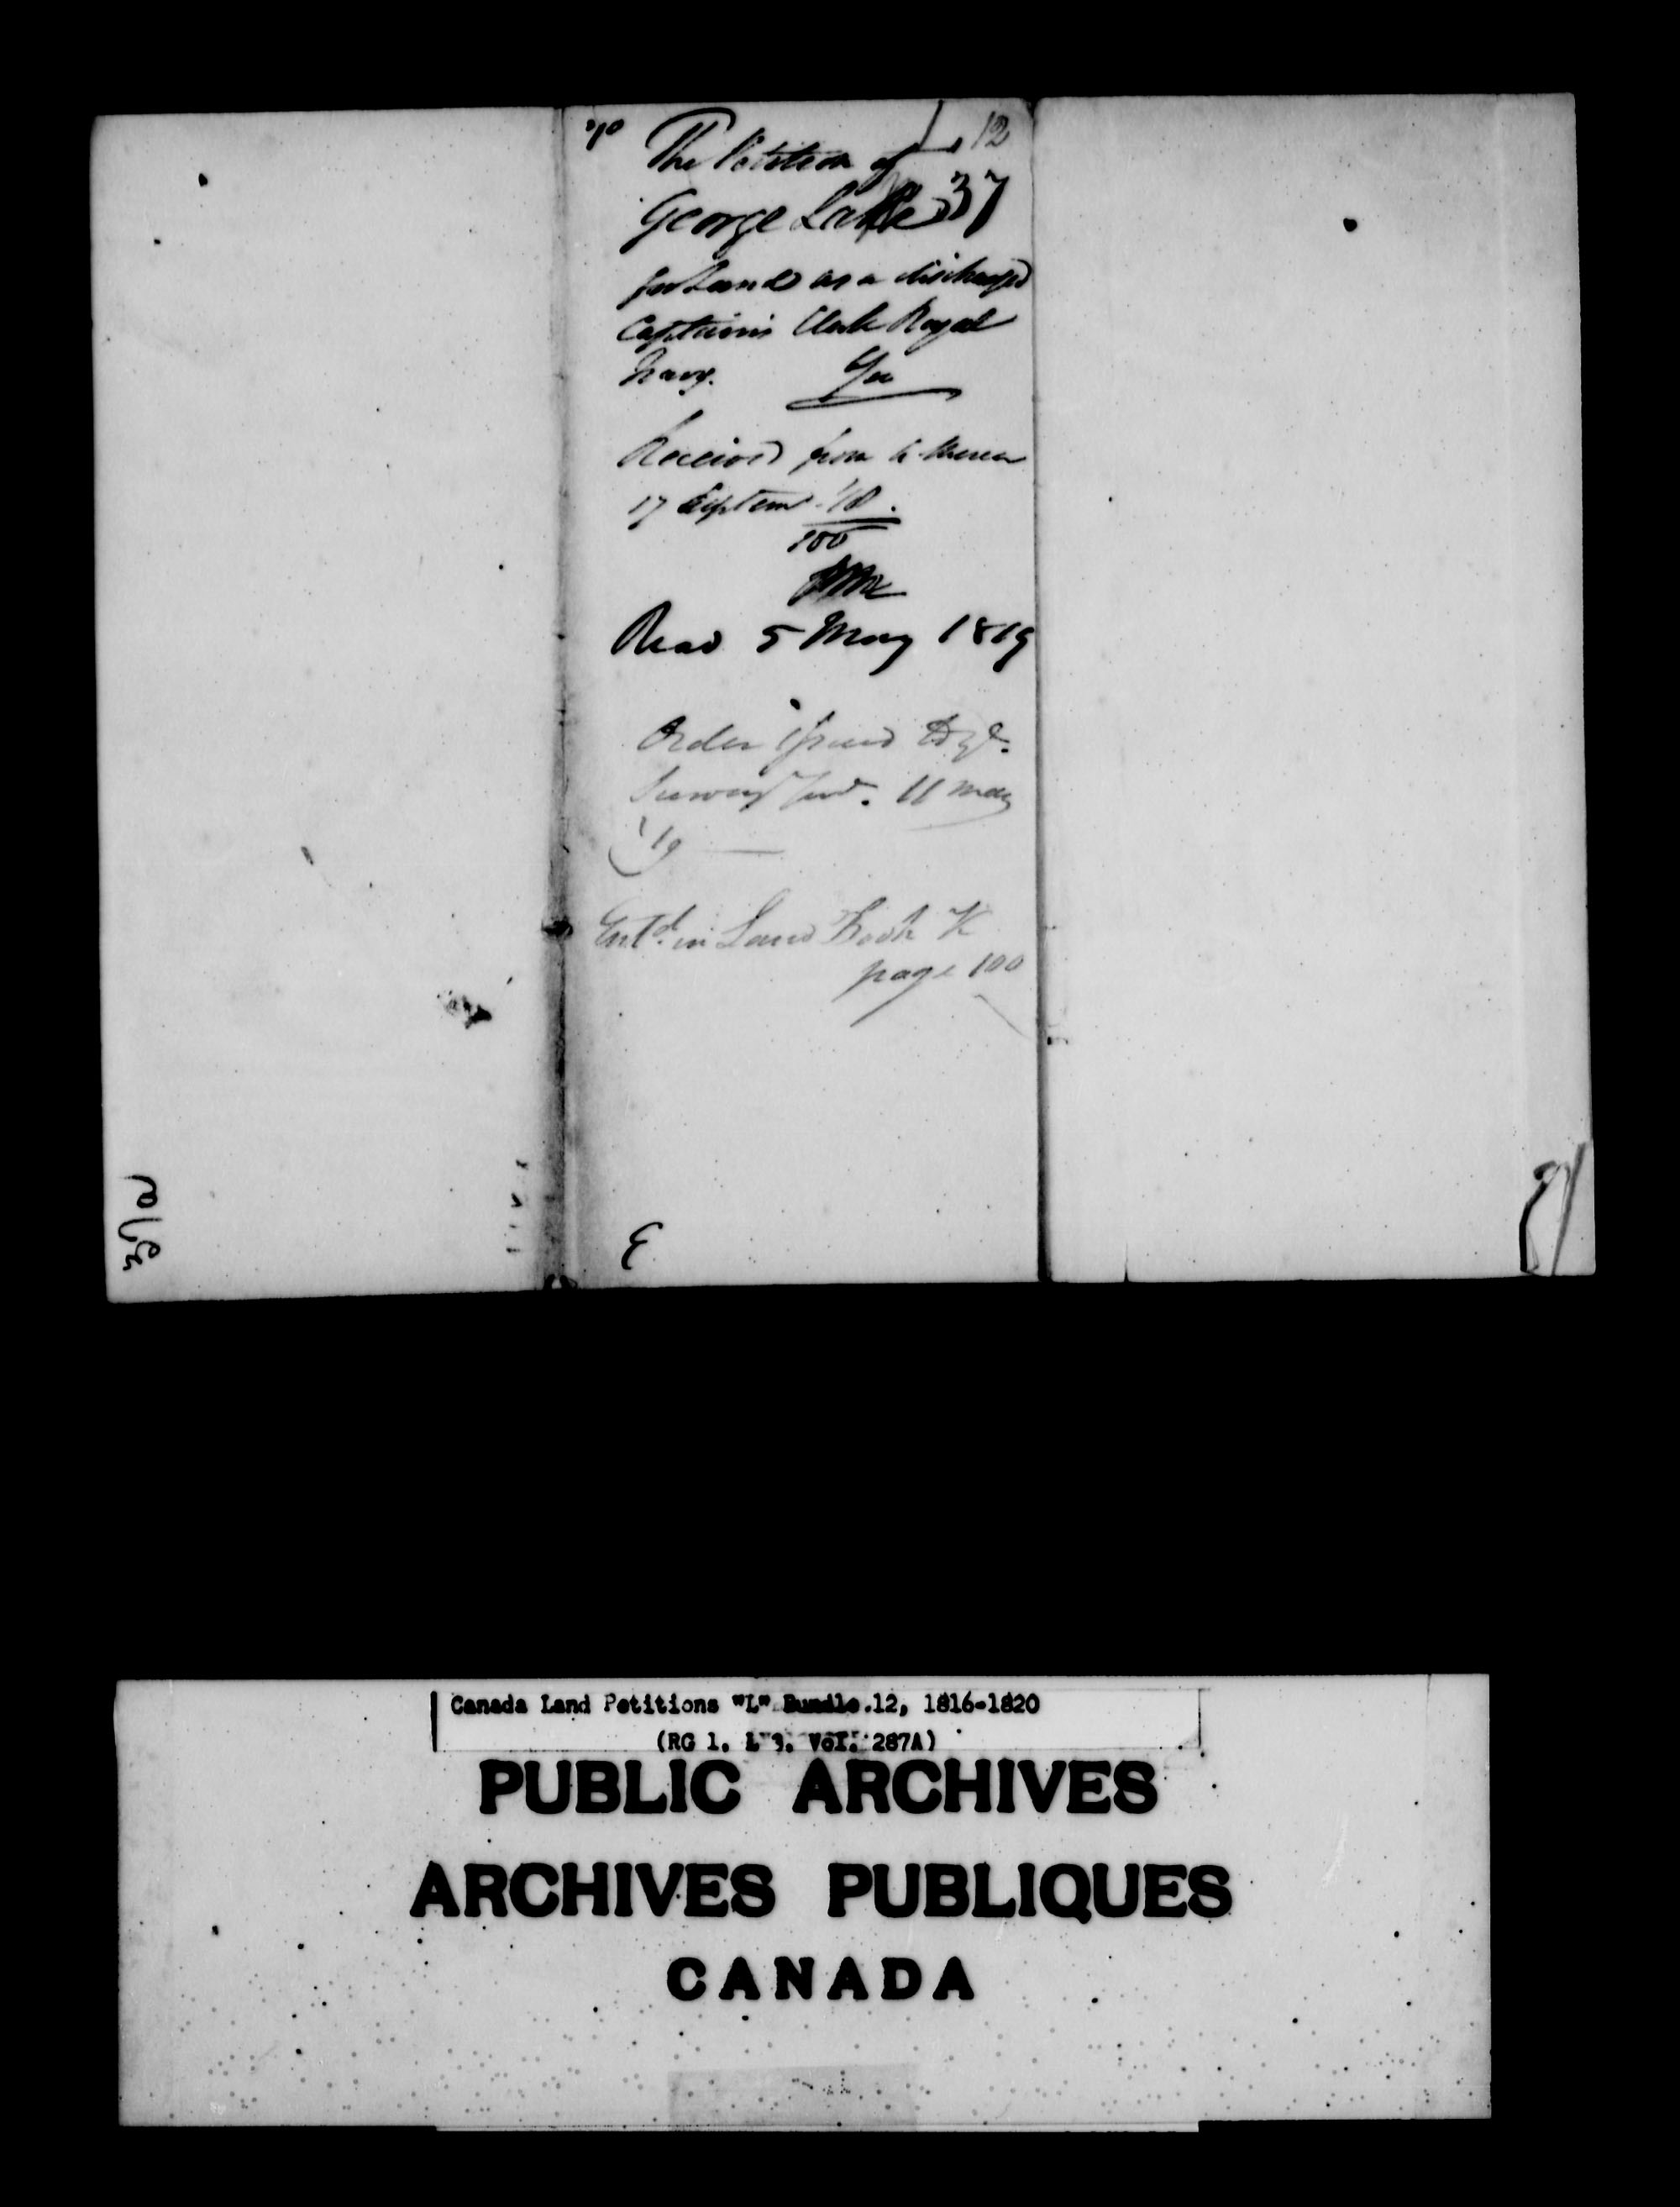 L 12
The Petition of
George Lake 37
for Land as a discharged
Captain's Clerk Royal
Navy.
Received from
17 Septem. '18.
100
Read 5 May 1819
Order Issued
11 May
'19
Entd. in Land Book K
page 100
Canada Land Petitions "L" Bundle 12, 1816-1820
(RG 1, L 3, Vol. 287A)
PUBLIC ARCHIVES
ARCHIVES PUBLIQUES
CANADA